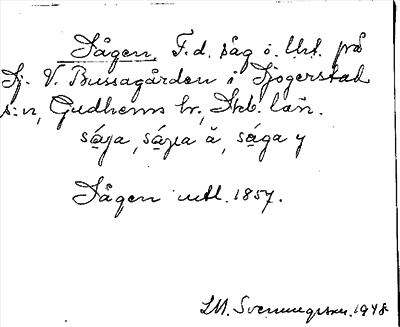 Sågen. F.d. såg ö. Utt. på
Fj. V. Bussagården i Sjogerstad
s:n, Gudhems hr., Skb. län.
såja, såjia å, såga y
Sågen utt. 1857.
LM. Svenungsson. 1948